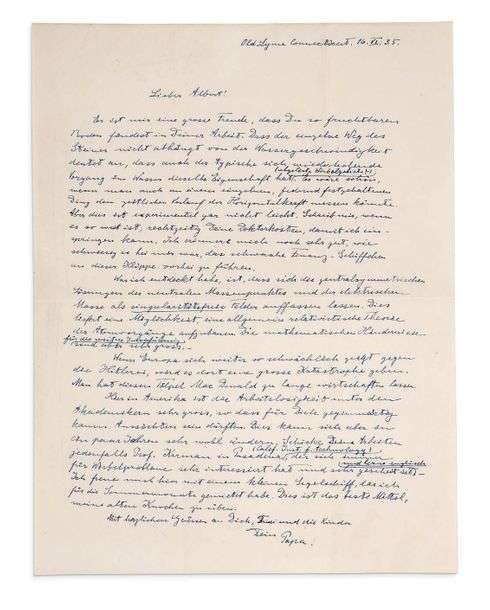 Old Lyme Connecticut. 16. VI. 35.
Lieber Albert!
Es ist mir eine grosse Freude, dass Du so fruchtbaren
Boden fandest in Deiner Arbeit. Dass der einzelne Weg des
Steines nicht abhängt von der Wassergeschwindigkeit
deutet an, dass auch das typische sich wiederholende
(abgelöste Wirbelgebiete!)
Vorgang im Wasser dieselbe Eigenschaft hat. Es wäre schön,
wenn man auch an einem einzelnen, federnd festgehaltenen
Ding den zeitlichen Verlauf der Horizontalkraft messen könnte.
Aber dies ist experimentel gar nicht leicht. Schreib mir, wenn
es so weit ist, rechtzeitig Deine Doktorkosten, damit ich ein-
springen kann. Ich erinnere mich noch sehr gut, wie
schwierig es bei mir war, das schwache Finanz-Schiffchen
an dieser Klippe vorbei zu führen.
Was ich entdeckt habe, ist, dass sich die zentralsymmetrischen
Lösungen des neutralen Massenpunktes und des elektrischen
Masse als singularitätsfreie Felder auffassen lassen. Dies
liefert eine Möglichkeit, eine allgemein relativistische Theorie
der Atomvorgänge aufzubauen. Die mathematischen Hindernisse
für die weitere Durchführung
sind aber sehr gross. —
Wenn Europa sich weiter so schwächlich zeigt gegen
die Hitlerei, wird es dort eine grosse Katastrophe geben.
Man hat diesen Tölpel Mac Donald zu lange wirtschaften lassen
Hier in Amerika ist die Arbeitslosigkeit unter den
Akademikern sehr gross, so dass für Dich gegenwärtig
kaum Aussichten sein dürften. Dies kann sich aber in
ein paar Jahren sehr wohl ändern. Schicke Deine Arbeiten
(Calif. Inst. f. Technology)
jedenfalls Prof. Karman in Pasadena, der sich
(und lerne englisch)
für Wirbelprobleme sehr interessiert hat und sehr gescheit ist. —
Ich freue mich hier mit einem kleinen Segelschiff, das ich
für die Sommermonate gemietet habe. Dies ist das beste Mittel,
meine alten Knochen zu üben.
Mit herzlichen Grüssen an Dich, und die Kinder
Dein Papa!